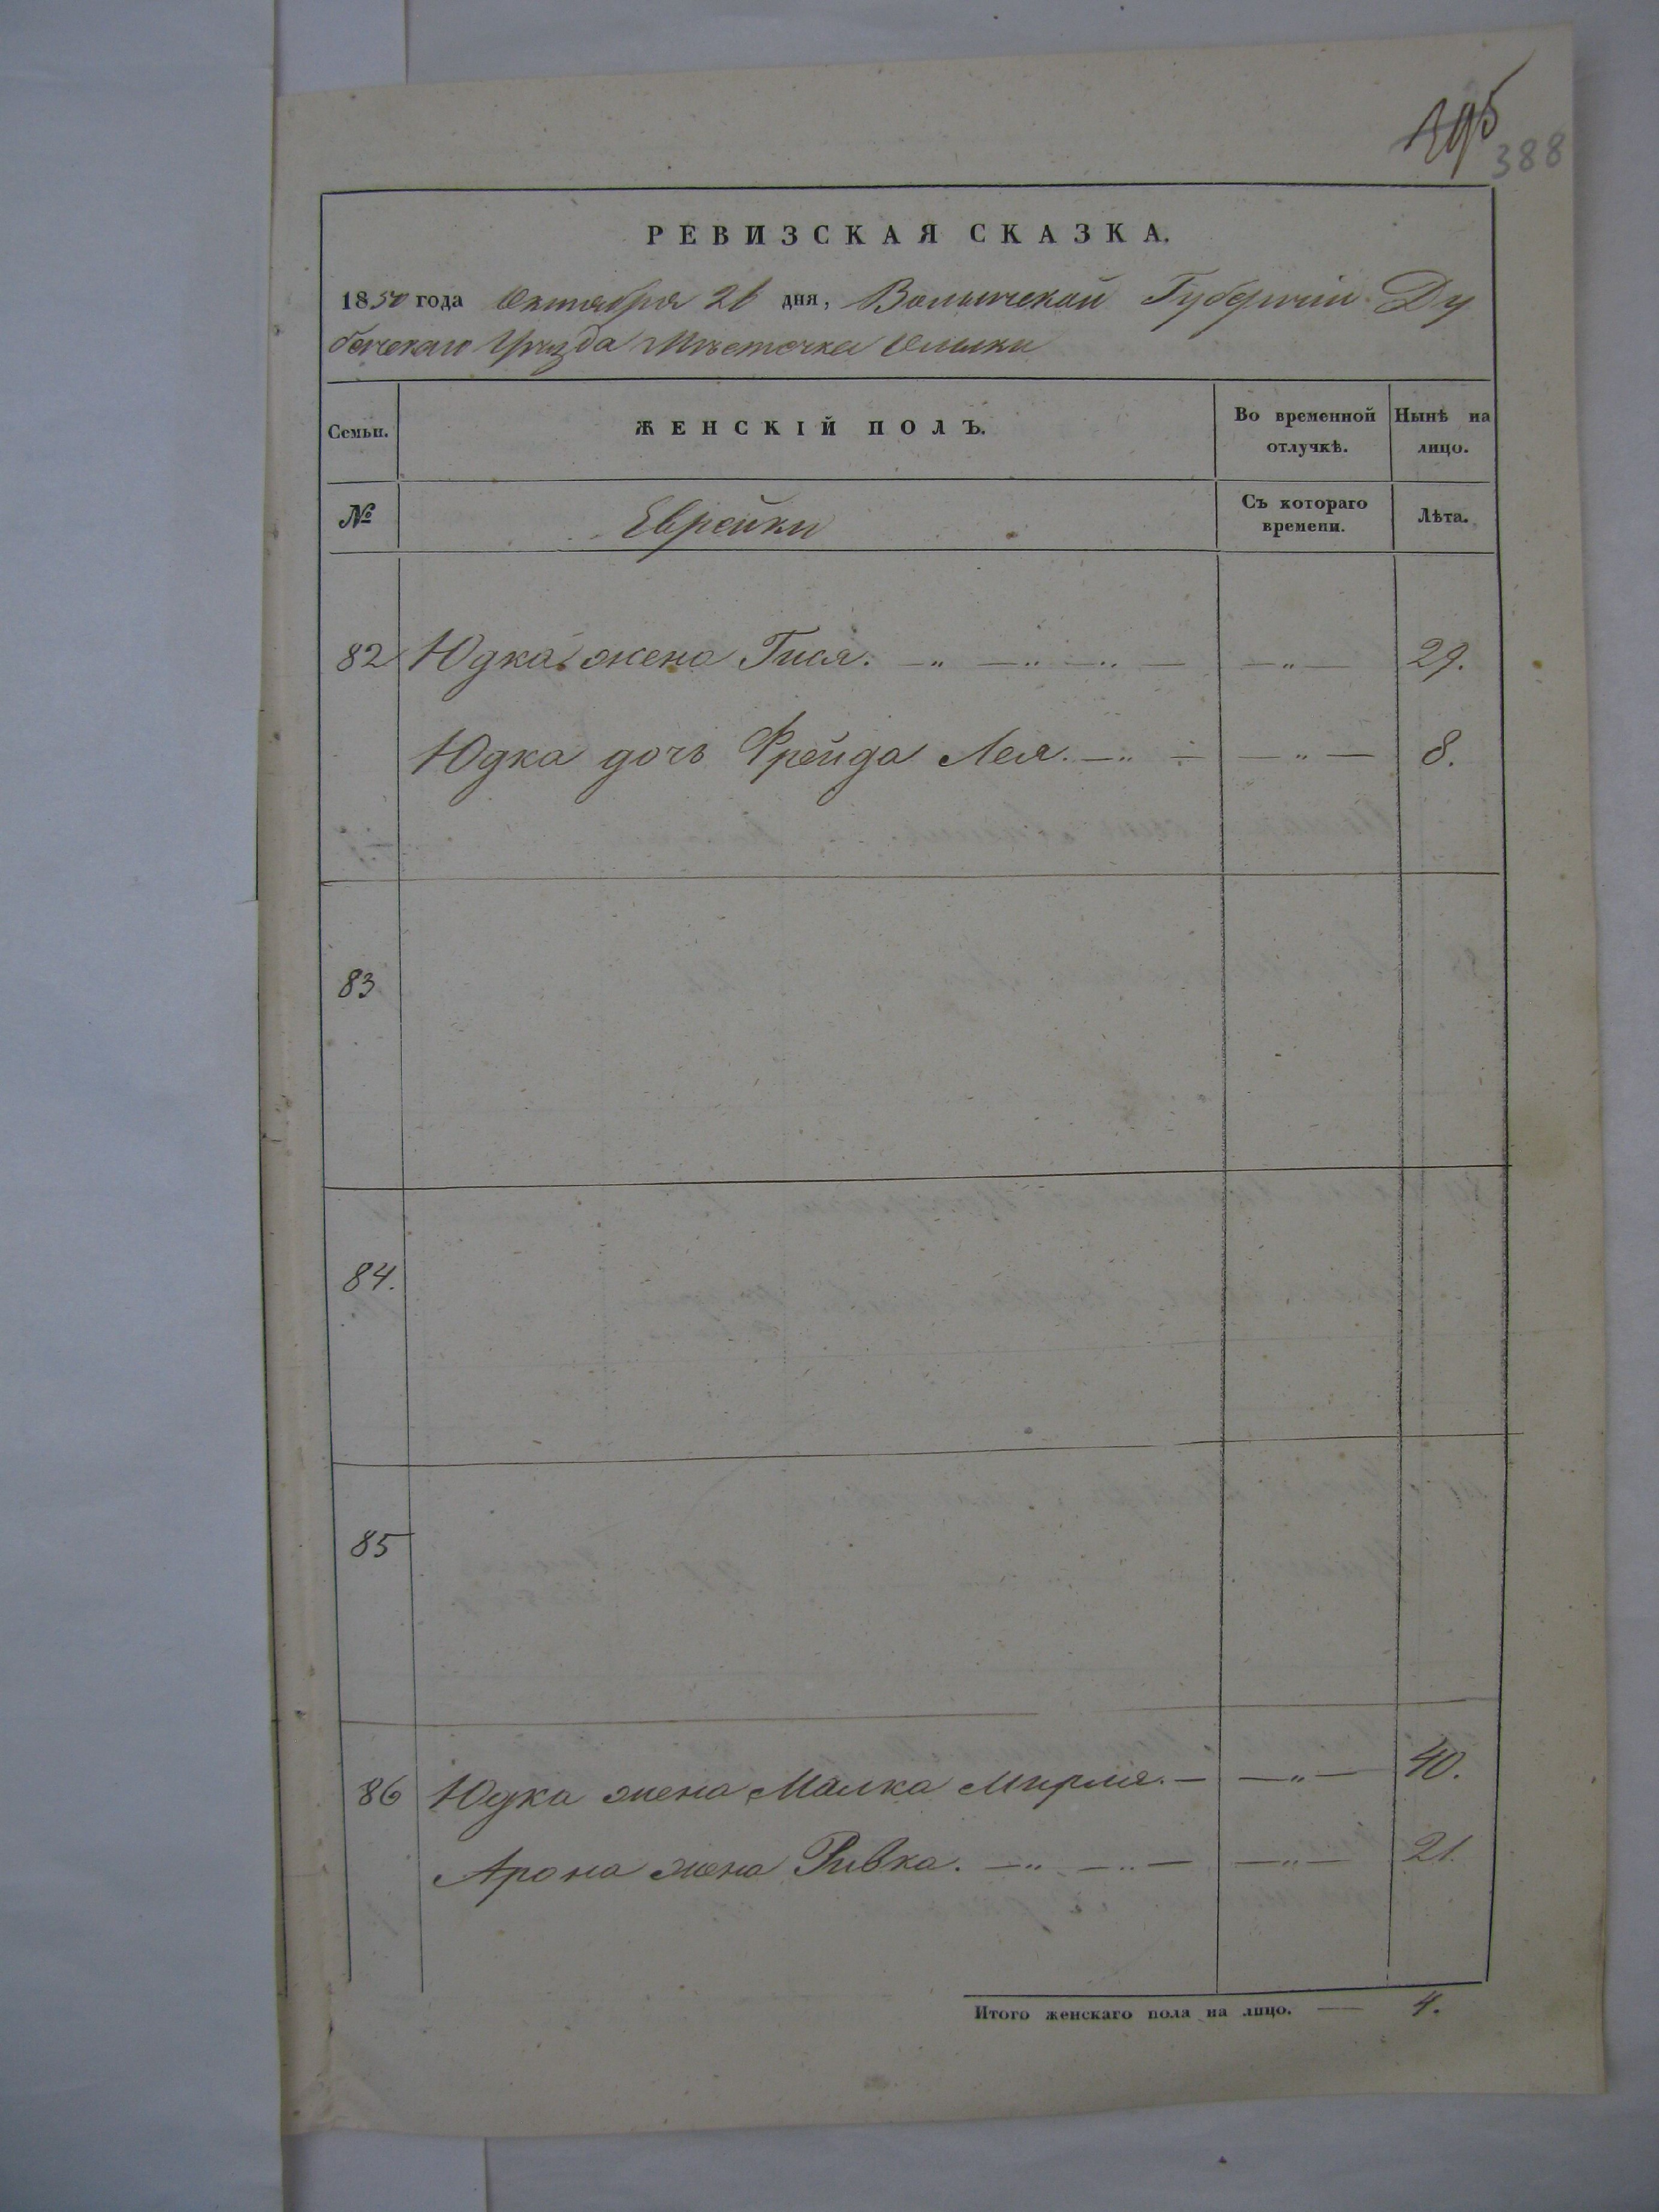 495
388
РЕВИЗСКАЯ СКАЗКА.
1850 года Октября 26 дня, Волынской Губерніи Ду
бенскаго Уѣзда Мѣстечка Олыки
Семьи. ЖЕНСКІЙ ПОЛЪ. Во временной отлучкѣ. Нынѣ на лицо.
№ Еврейки Съ котораго времени. Лѣта.
82 Юдка жена Гися. — „ — „ — „ — — „ — 29.
Юдка дочь Фрейда Лея. — „ — — „ — 8.
83
84.
85
86 Юдка жена Малка Мирля. — — „ — 40.
Арона жена Ривка. — „ — „ — — „ — 21.
Итого женскаго пола на лицо. — 4.